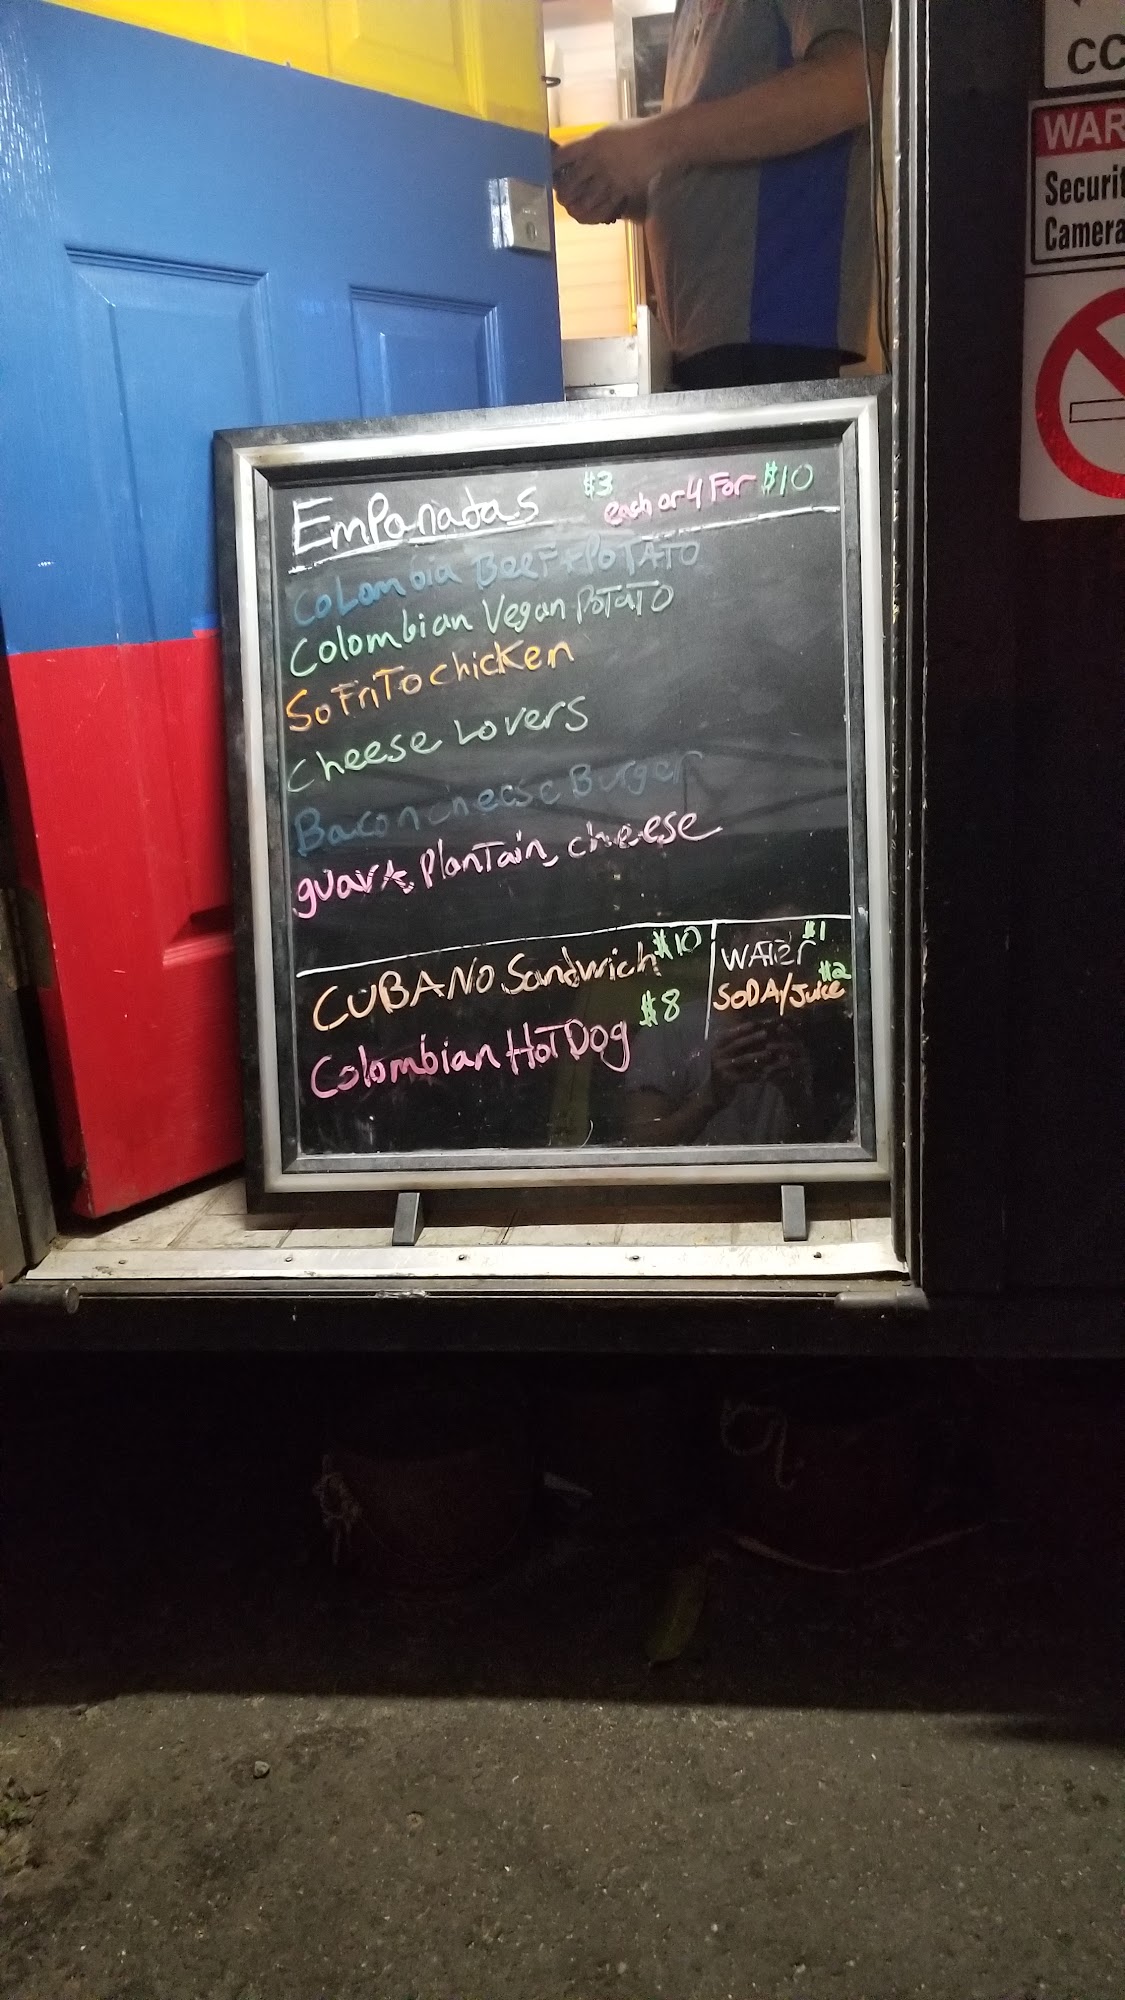 CC
WAR
Securit
Camera
EmPanadas $3 each or 4 For $10
Colombia BeeF + PoTATO
Colombian Vegan PoTaTO
SoFriTo chicken
Cheese Lovers
Bacon cheese Burger
guava, PlanTain, cheese
CUBANO Sandwich $10
Colombian HoT Dog $8
WATer $1
SODA/Juice $2